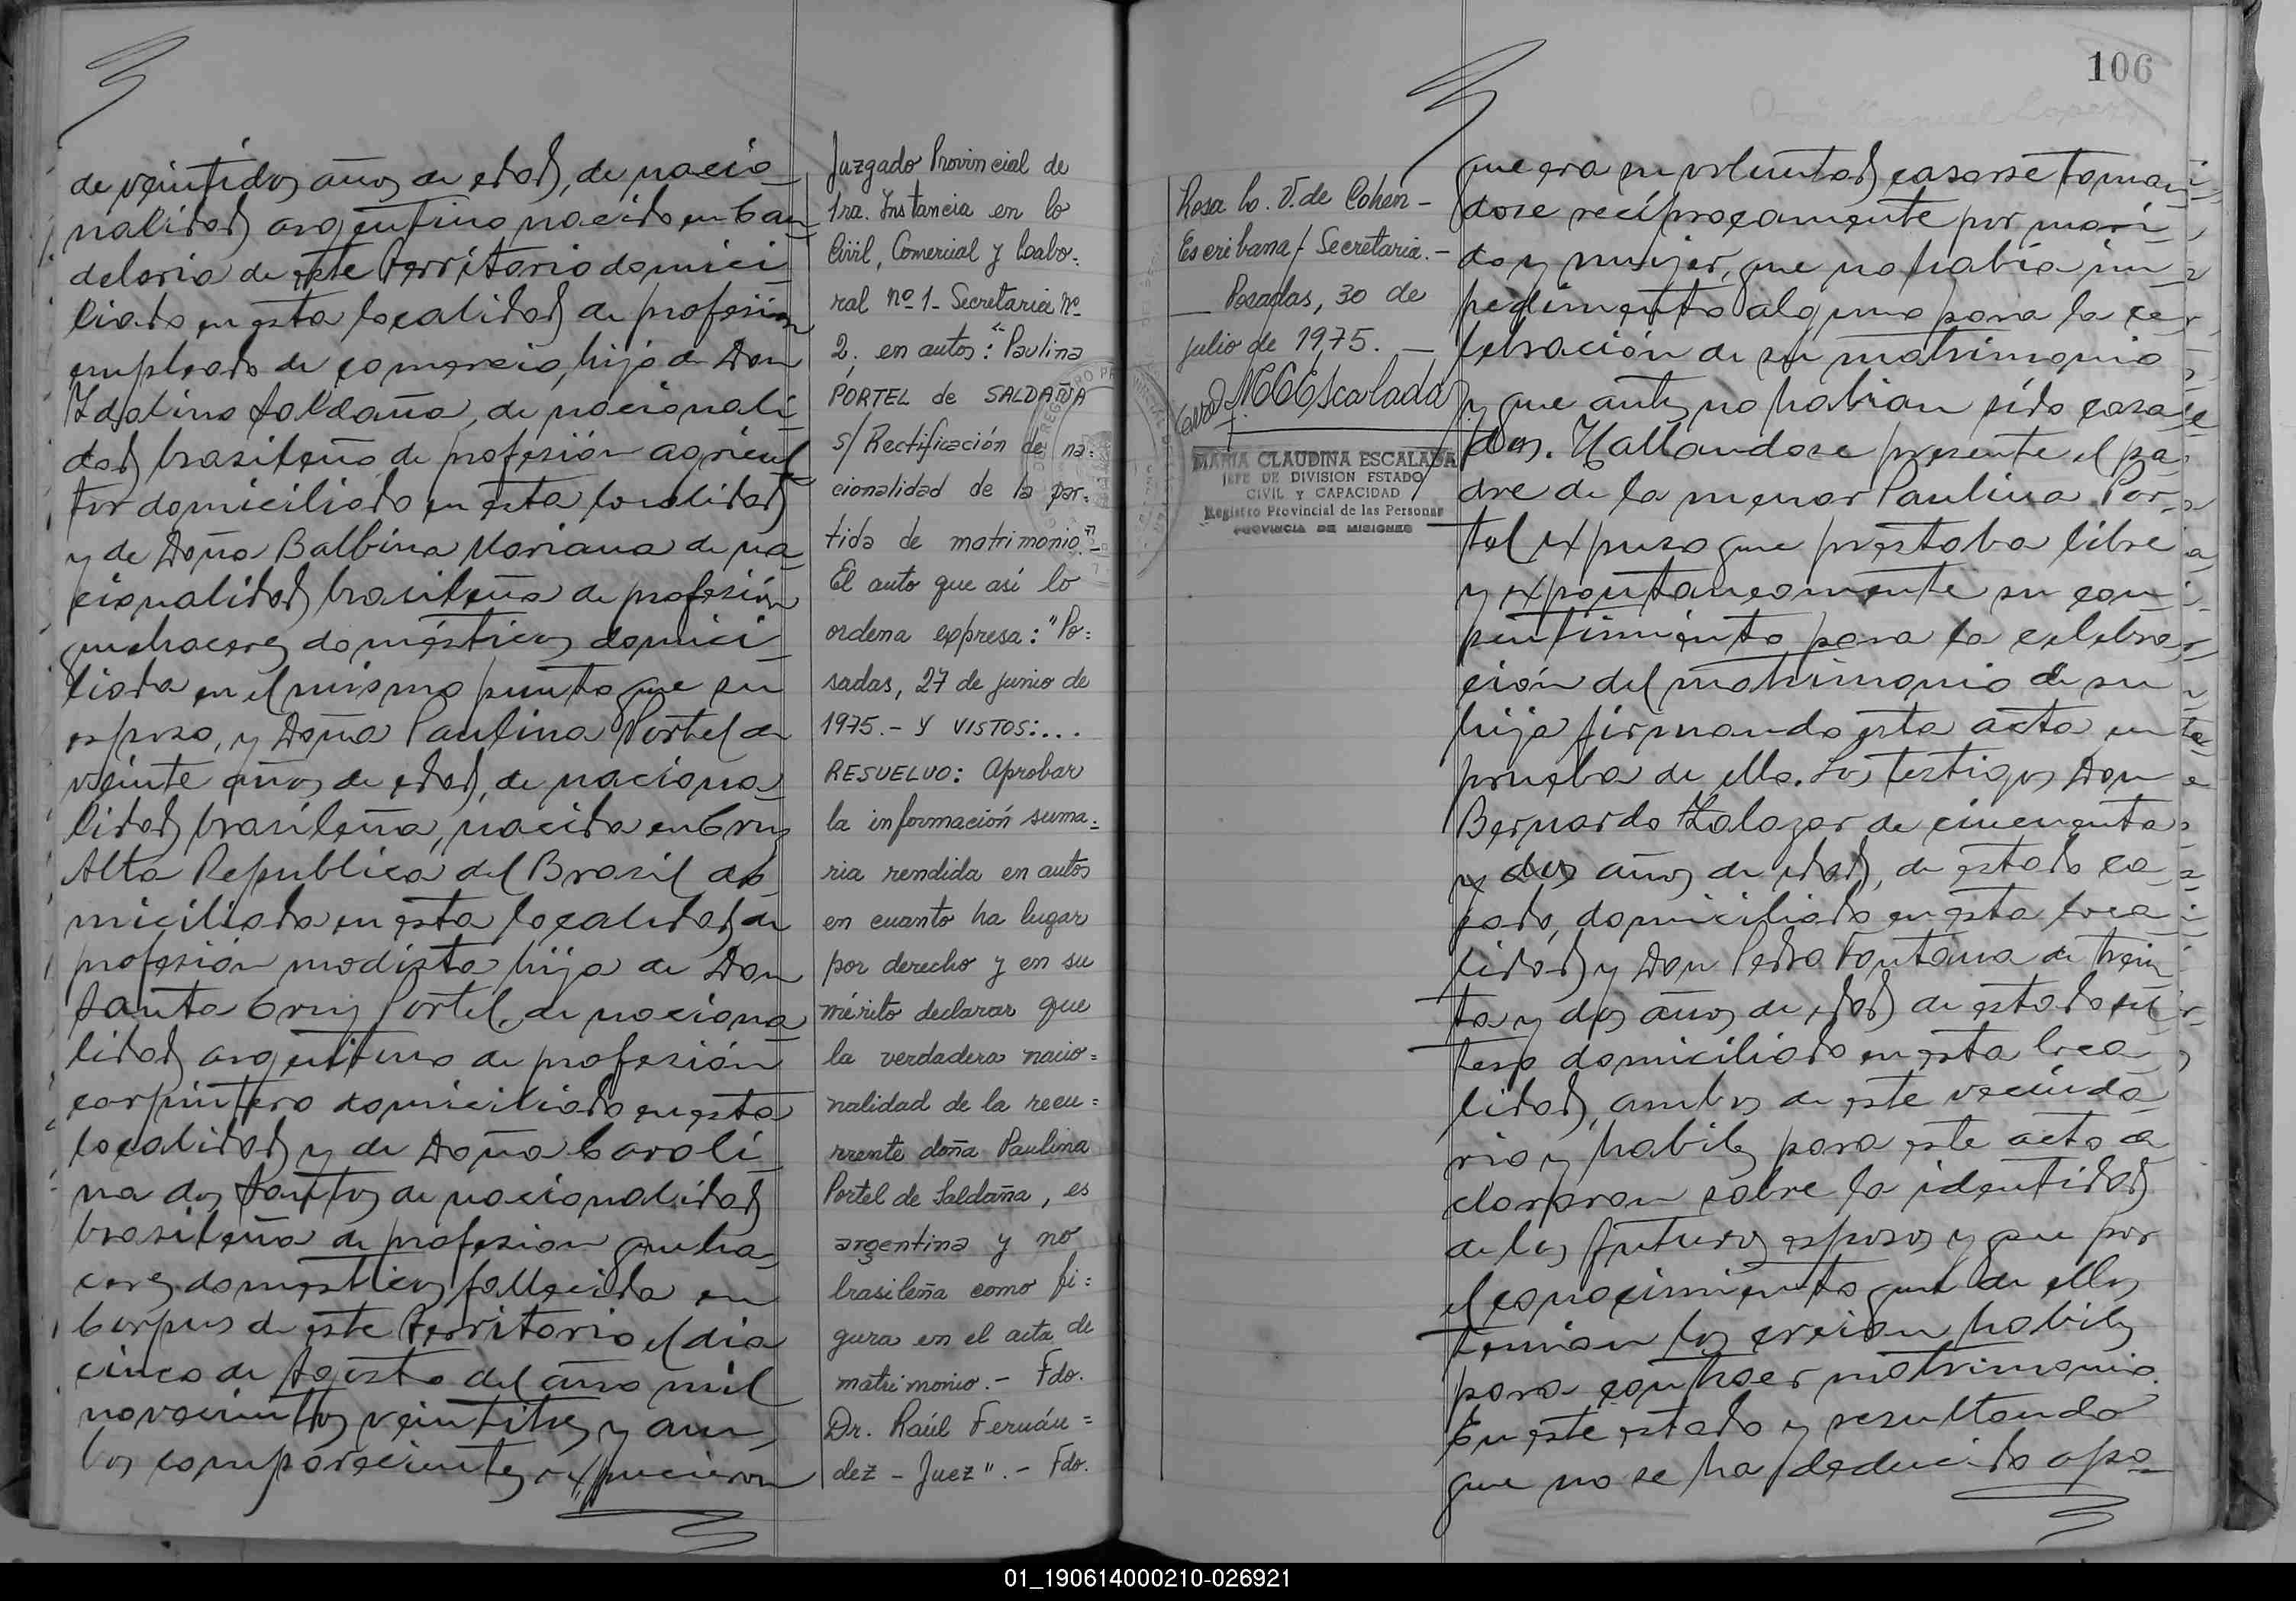 de veintidos años de edad, de nacio-
nalidad argentino nacido en Can-
delaria de este Territorio domici-
liado en esta localidad de profesión
empleado de comercio, hijo de Don
Saldaña, de nacionali-
dad brasileño de profesión agricul-
tor domiciliado en esta localidad
y de Doña Balbina Mariana de na-
cionalidad brasileña de profesión
quehaceres domésticos domici-
liada en el mismo punto que su
esposo, y Doña Paulina Portel de
veinte años de edad, de naciona-
lidad brasileña, nacida en Cruz
Alta Republica del Brasil do-
miciliada en esta localidad de
profesión modista hija de Don
Santa Cruz Portel, de naciona-
lidad argentino de profesión
carpintero domiciliado en esta
localidad y de Doña Caroli-
na dos Santos de nacionalidad
brasileña de profesion queha-
ceres domesticos fallecida en
Corpus de este Territorio el dia
cinco de Agosto del año mil
novecientos veintitres y am-
bos comparecientes expusieron
Juzgado Provincial de
1ra. Instancia en lo
Civil, Comercial y Labo=
ral nº 1 - Secretaria nº
2. en autos: "Paulina
PORTEL de SALDAÑA
s/ Rectificación de na=
cionalidad de la par=
tida de matrimonio."-
El auto que así lo
ordena expresa: "Po=
sadas, 27 de junio de
1975.- Y VISTOS:...
RESUELVO: Aprobar
la información suma=
ria rendida en autos
en cuanto ha lugar
por derecho y en su
mérito declarar que
la verdadera nacio=
nalidad de la recu=
rrente doña Paulina
Portel de Saldaña, es
argentina y no
brasileña como fi=
gura en el acta de
matrimonio.- Fdo.
Dr. Raúl Fernán=
dez - Juez".- Fdo.
106
Rosa L. V. de Cohen -
Escribana/ Secretaria.-
Posadas, 30 de
julio de 1975. -
MCEscalada
MARIA CLAUDINA ESCALADA
JEFE DE DIVISION ESTADO
CIVIL Y CAPACIDAD
Registro Provincial de las Personas
PROVINCIA DE MISIONES
que era su voluntad casarse toman-
dose recíprocamente por mari-
do y mujer, que no habia im-
pedimento alguno para la ce-
lebración de su matrimonio
y que antes no habian sido casa-
dos. Hallandose presente el pa-
dre de la menor Paulina Por-
tel expuso que prestaba libre
y expontaneamente su con-
sentimiento para la celebra-
ción del matrimonio de su
hija firmando esta acta en
prueba de ello. Los testigos Don
Bernardo Zalazar de cincuenta
y dos años de edad, de estado ca-
sado, domiciliado en esta loca-
lidad y Don Pedro Fontana de trein-
ta y dos años de edad de estado sol-
tero domiciliado en esta loca-
lidad, ambos de este vecinda-
rio y habiles para este acto de-
clararon sobre la identidad
de los futuros esposos y que por
el conocimiento que de ellos
tenian los creian habiles
para contraer matrimonio.
En este estado y resultando
que no se ha deducido opo-
01_190614000210-026921